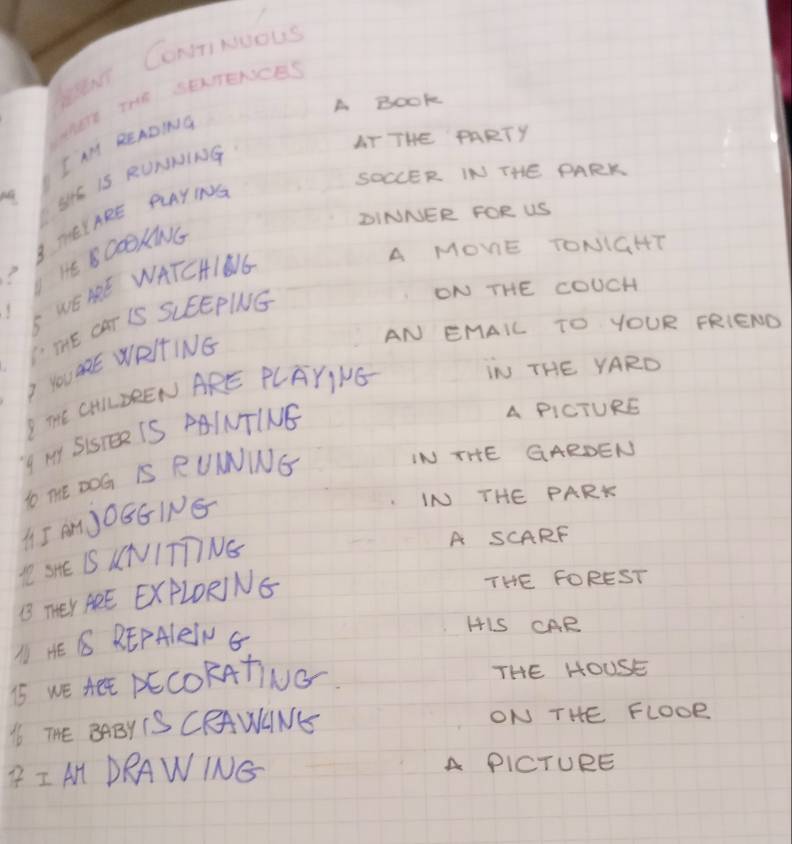 PRESENT CONTINUOUS
COMPLETE THE SENTENCES
1 I AM READING A BOOK
2 SHE IS RUNNING AT THE PARTY
3 THEY ARE PLAYING SOCCER IN THE PARK
4 HE IS COOKING DINNER FOR US
5 WE ARE WATCHING A MOVIE TONIGHT
6 THE CAT IS SLEEPING ON THE COUCH
7 YOU ARE WRITING AN EMAIL TO YOUR FRIEND
8 THE CHILDREN ARE PLAYING IN THE YARD
9 MY SISTER IS PAINTING A PICTURE
10 THE DOG IS RUNNING IN THE GARDEN
11 I AM JOGGING IN THE PARK
12 SHE IS KNITTING A SCARF
13 THEY ARE EXPLORING THE FOREST
14 HE IS REPAIRING HIS CAR
15 WE ARE DECORATING THE HOUSE
16 THE BABY IS CRAWLING ON THE FLOOR
17 I AM DRAWING A PICTURE